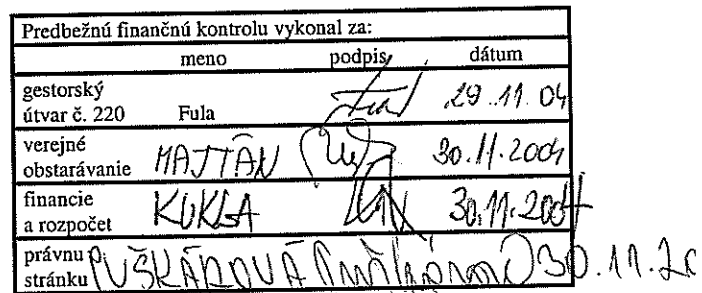 Predbežnú finančnú kontrolu vykonal za:
meno podpis dátum
gestorský
útvar č. 220 Fula 29.11.04
verejné
obstarávanie MAJTÁN 30.11.2004
financie
a rozpočet KUKLA 30.11.2004
právnu
stránku PUŠKÁROVÁ Puškárová 30.11.20